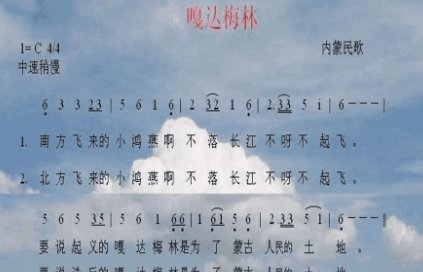 嘎达梅林
1=C 4/4
内蒙民歌
中速稍慢
6 3 3 23 | 5 6 1 6 | 2 32 1 6 | 2 33 5 i | 6 — — — |
1. 南方飞来的小鸿燕啊 不落 长江不呀不起飞。
2. 北方飞来的小鸿燕啊 不落 长江不呀不起飞。
5 6 5 35 | 5 6 1 66 | 1 61 5 6 | 2 33 5 1 | 6 — — — |
要说起义的嘎达梅林是为了蒙古人民的土地。